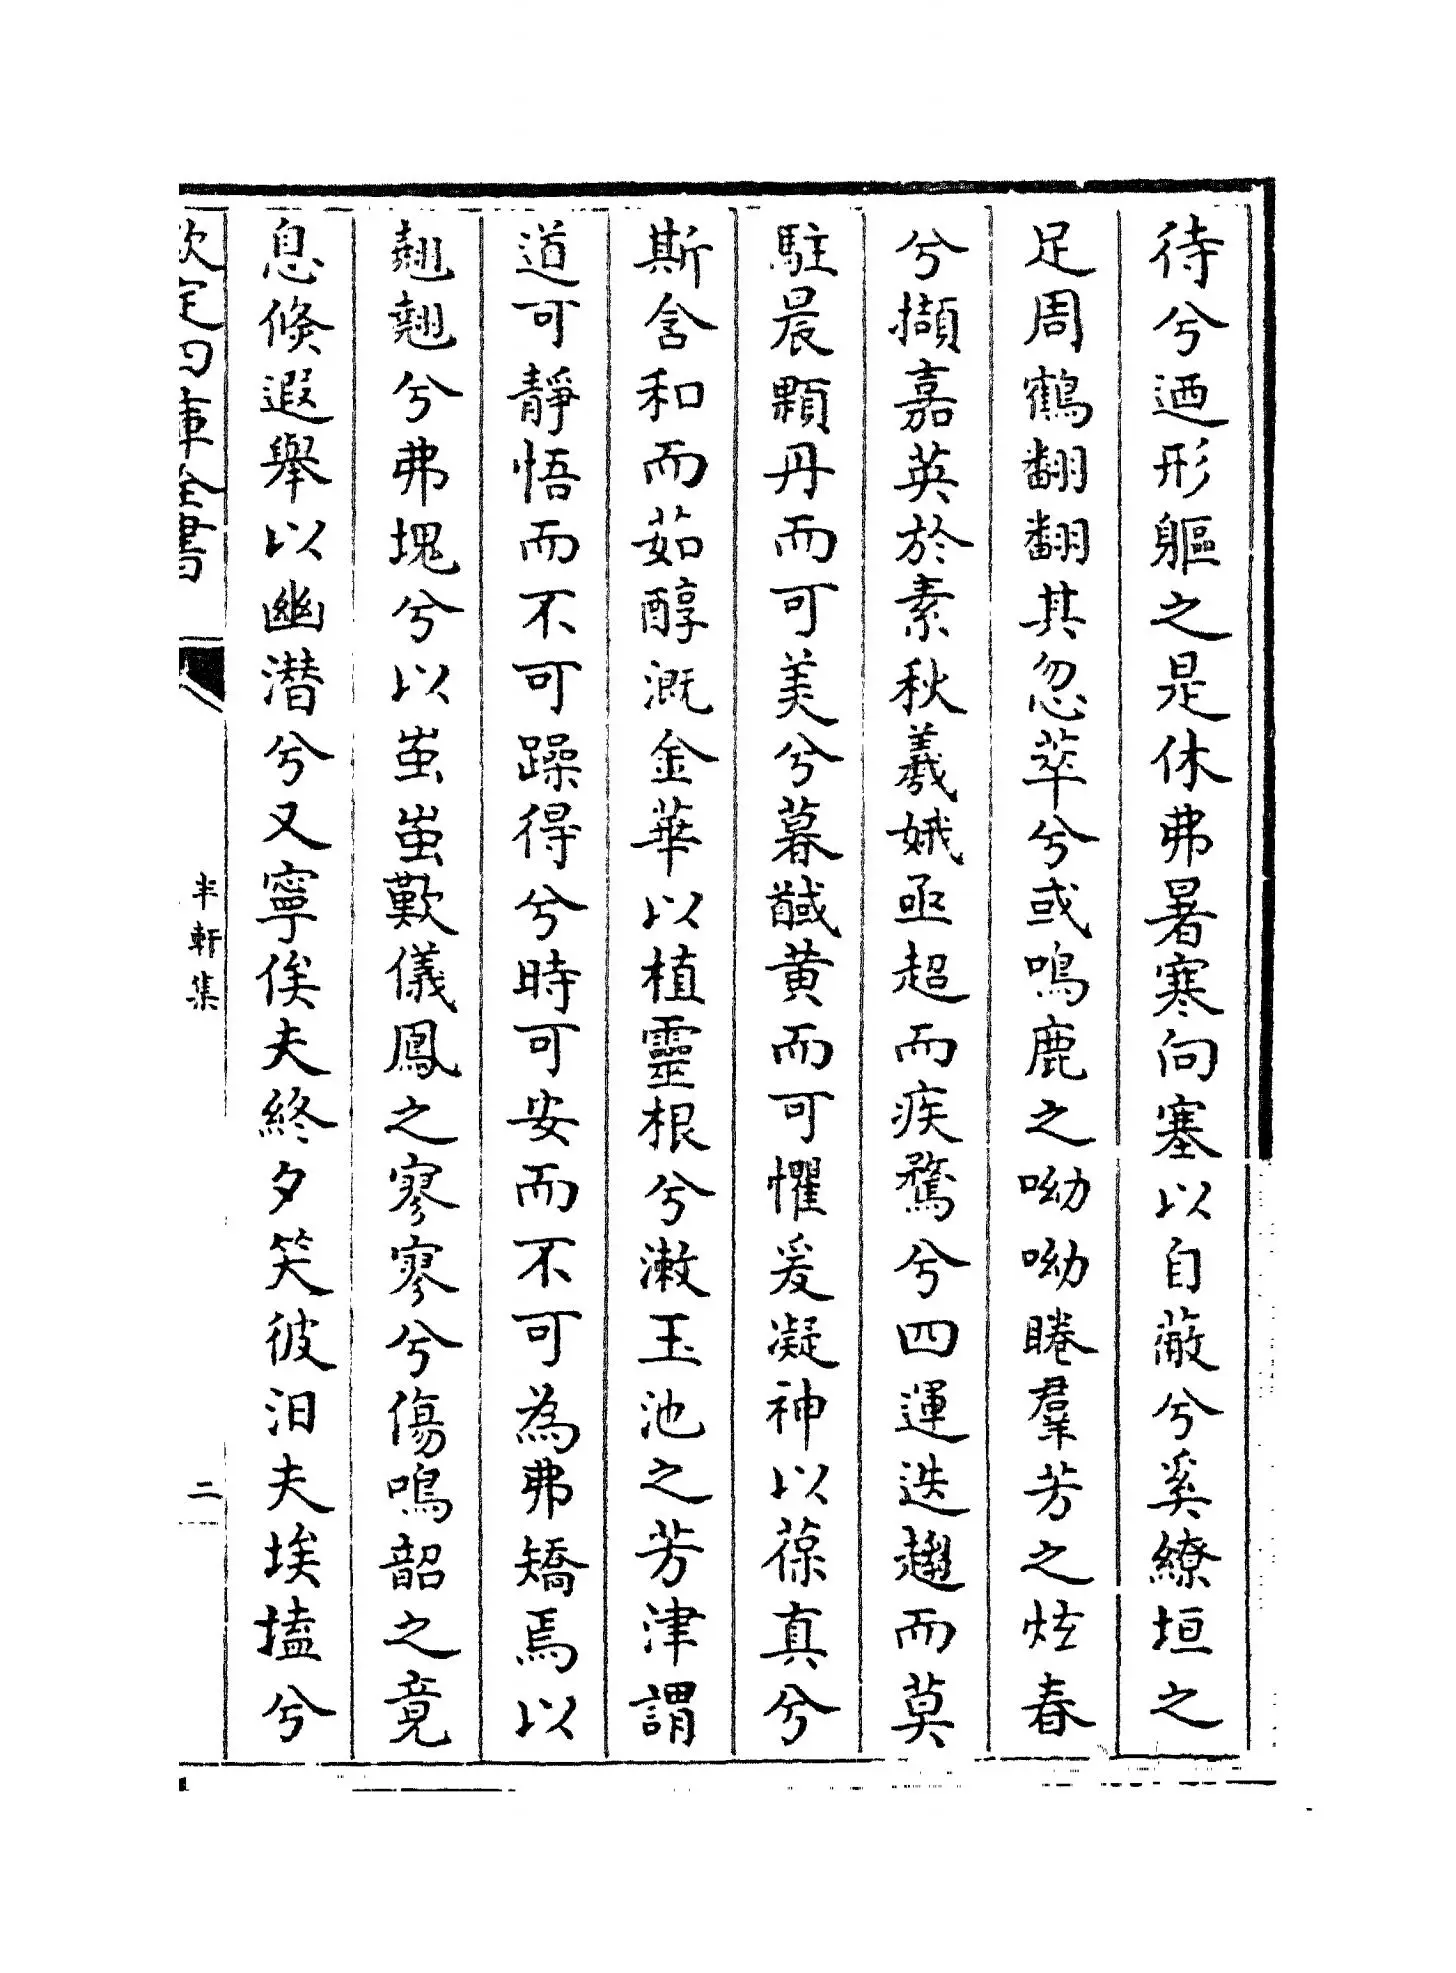 待兮迺形軀之是休弗暑寒向塞以自蔽兮奚繚垣之
足周鶴翻翻其忽萃兮或鳴鹿之呦呦睠羣芳之炫春
兮擷嘉英於素秋羲娥亟超而疾騖兮四運迭趨而莫
駐晨顆丹而可美兮暮黬黄而可懼爰凝神以葆真兮
斯含和而茹醇溉金華以植靈根兮漱玉池之芳津謂
道可靜悟而不可躁得兮時可安而不可為弗矯焉以
翹翹兮弗塊兮以蚩蚩歎儀鳳之寥寥兮傷鳴韶之竟
息倐遐舉以幽潛兮又寧俟夫終夕笑彼汩夫埃壒兮
欽定四庫全書
半軒集
二